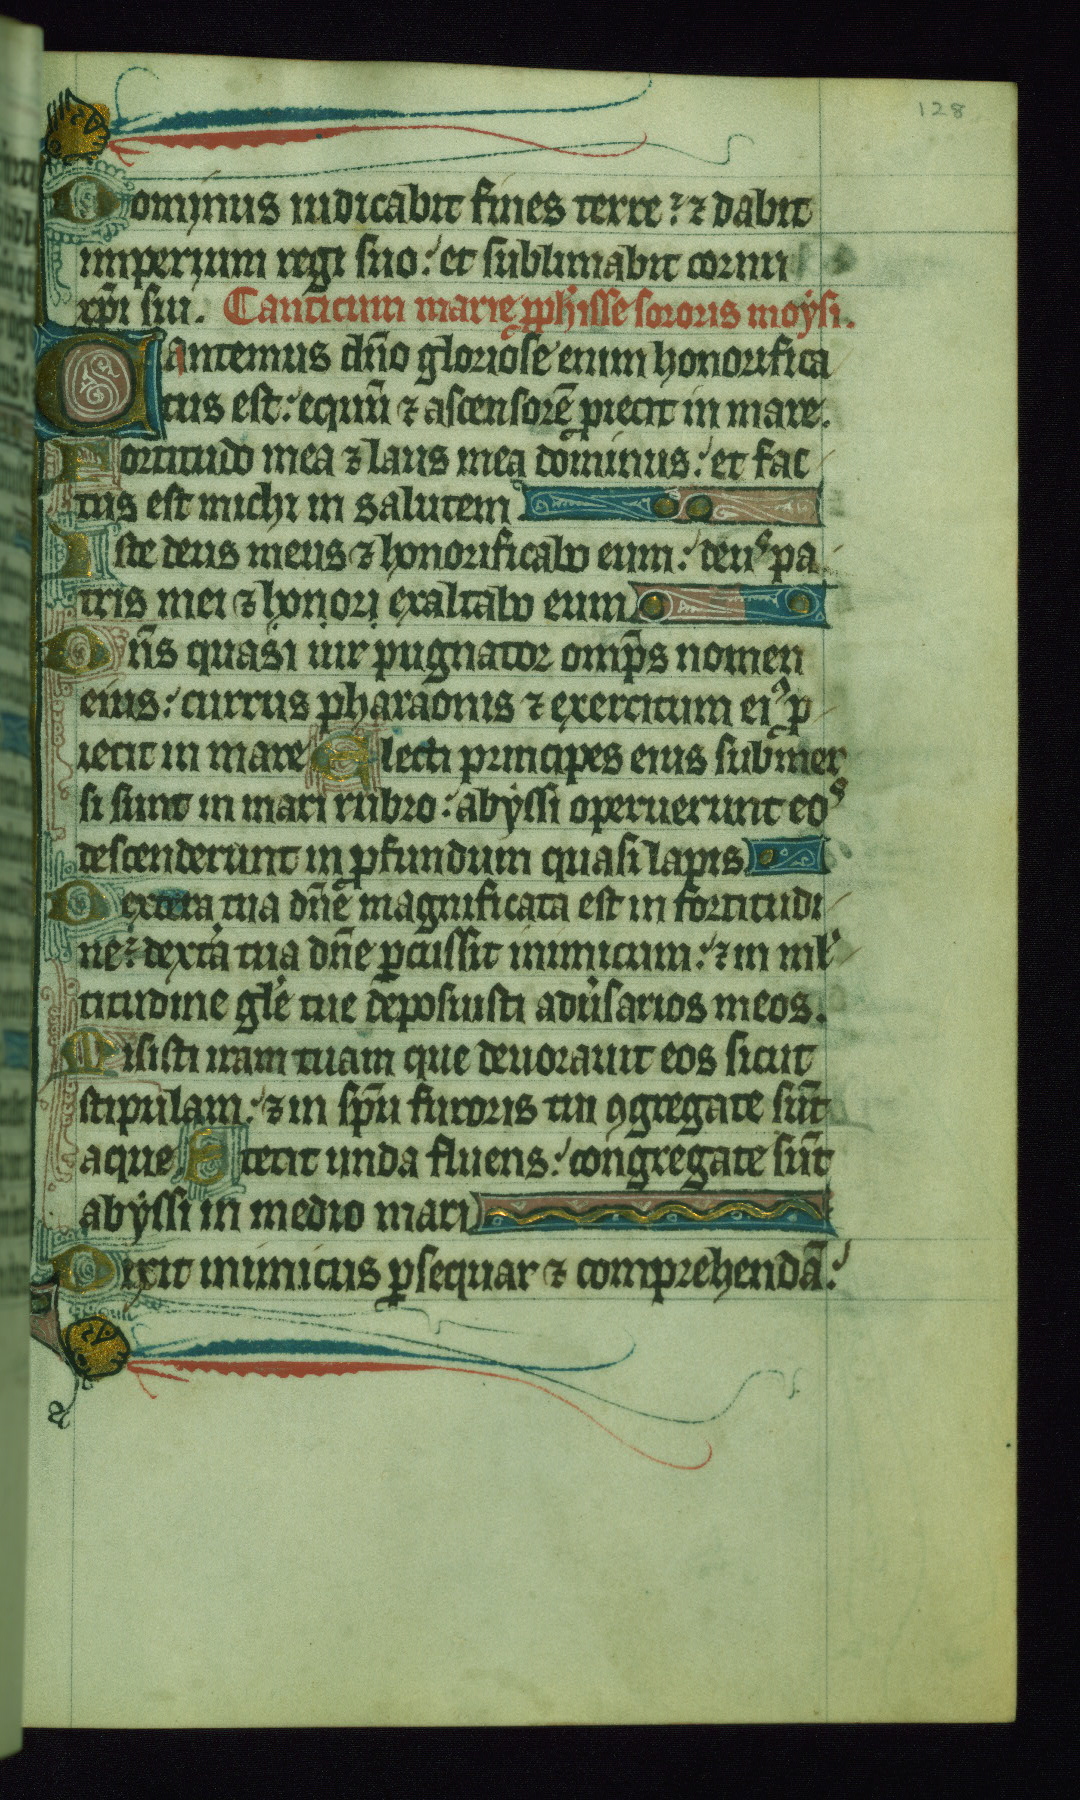 128
Dominus iudicabit fines terre: ⁊ dabit
imperium regi suo: et sublimabit cornu
xp̄i sui. Canticum marie ꝓph̄isse sororis moẏsi.
Cantemus dn̄o gloriose enim honorifica
tus est: equū ⁊ ascensorē ꝓiecit in mare.
Fortitudo mea ⁊ laus mea dominus: et fac
tus est michi in salutem.
Iste deus meus ⁊ honorificabo eum: deuˢ pa
tris mei ⁊ honori exaltabo eum.
Dn̄s quasi uir pugnator omp̄s nomen
eius: currus pharaonis ⁊ exercitum eiꝰ ꝓ
iecit in mare Electi principes eius submer
si sunt in mari rubro: abẏssi operuerunt eoˢ
descenderunt in ꝓfundum quasi lapis.
Dextera tua dn̄e magnificata est in fortitudi
ne: dext̾a tua dn̄e ꝑcussit inimicum: ⁊ in ml̾
titudine gl̾e tue deposuisti adu̾sarios meos.
Misisti iram tuam que deuorauit eos sicut
stipulam: ⁊ in sp̄u furoris tui ꝯgregate sūt
aque Stetit unda fluens: congregate sūt
abẏssi in medio mari
Dixit inimicus ꝑsequar ⁊ comprehendā: